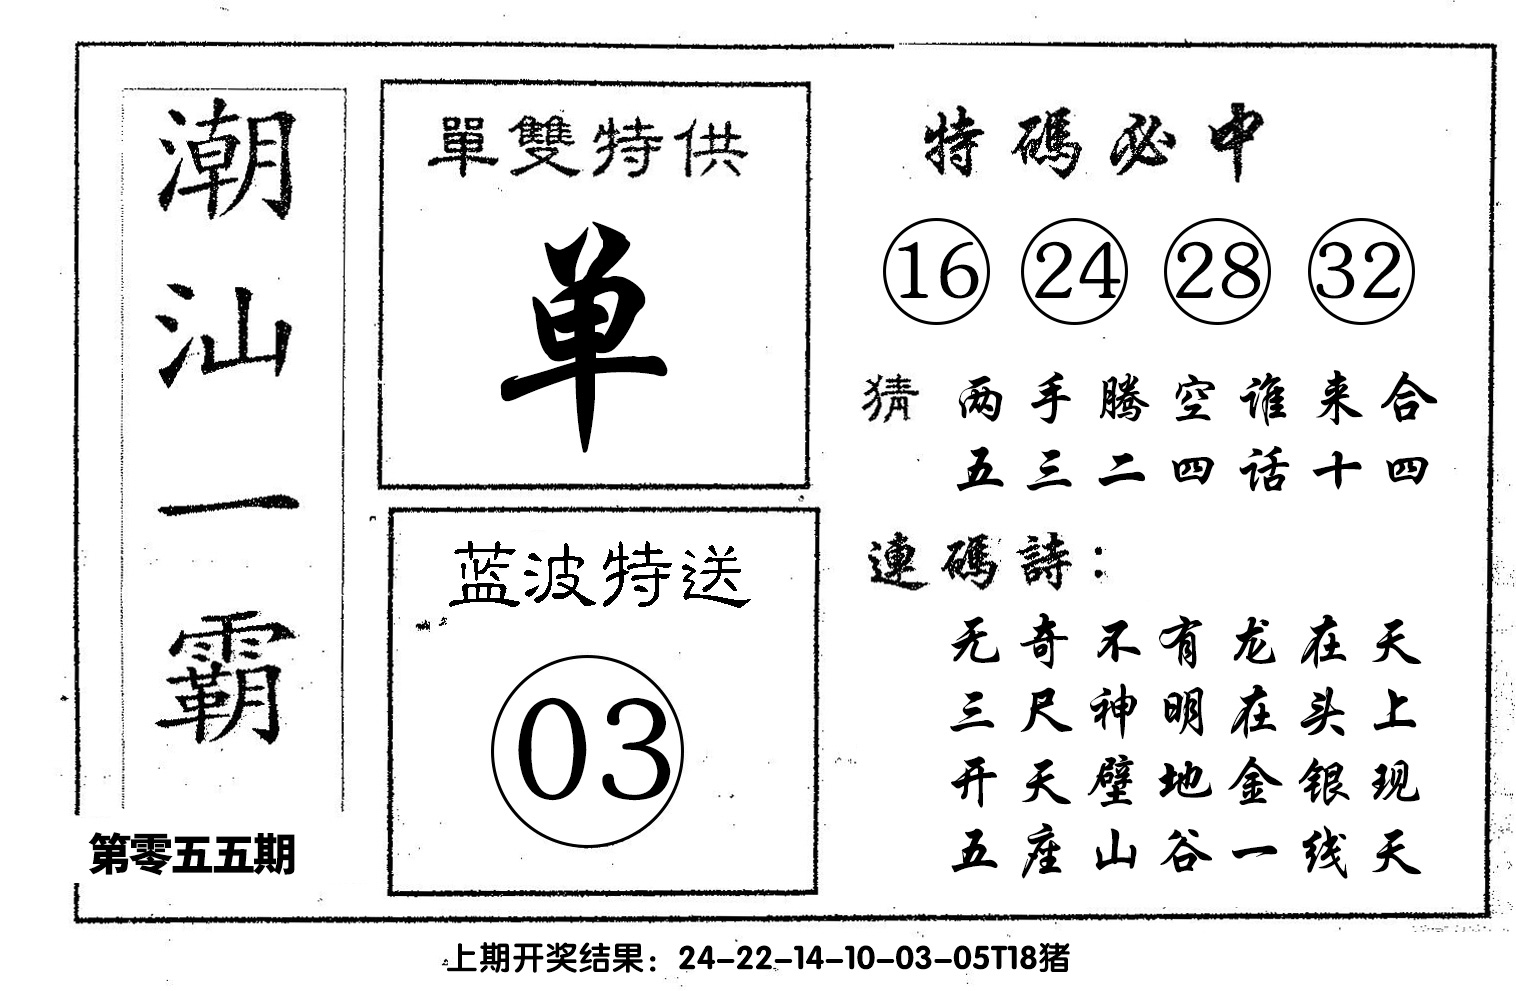 潮汕一霸
第零五五期
單雙特供
单
蓝波特送
03
特碼必中
16 24 28 32
猜 两手腾空谁来合
五三二四话十四
連碼詩：
无奇不有龙在天
三尺神明在头上
开天壁地金银现
五座山谷一线天
上期开奖结果：24-22-14-10-03-05T18猪